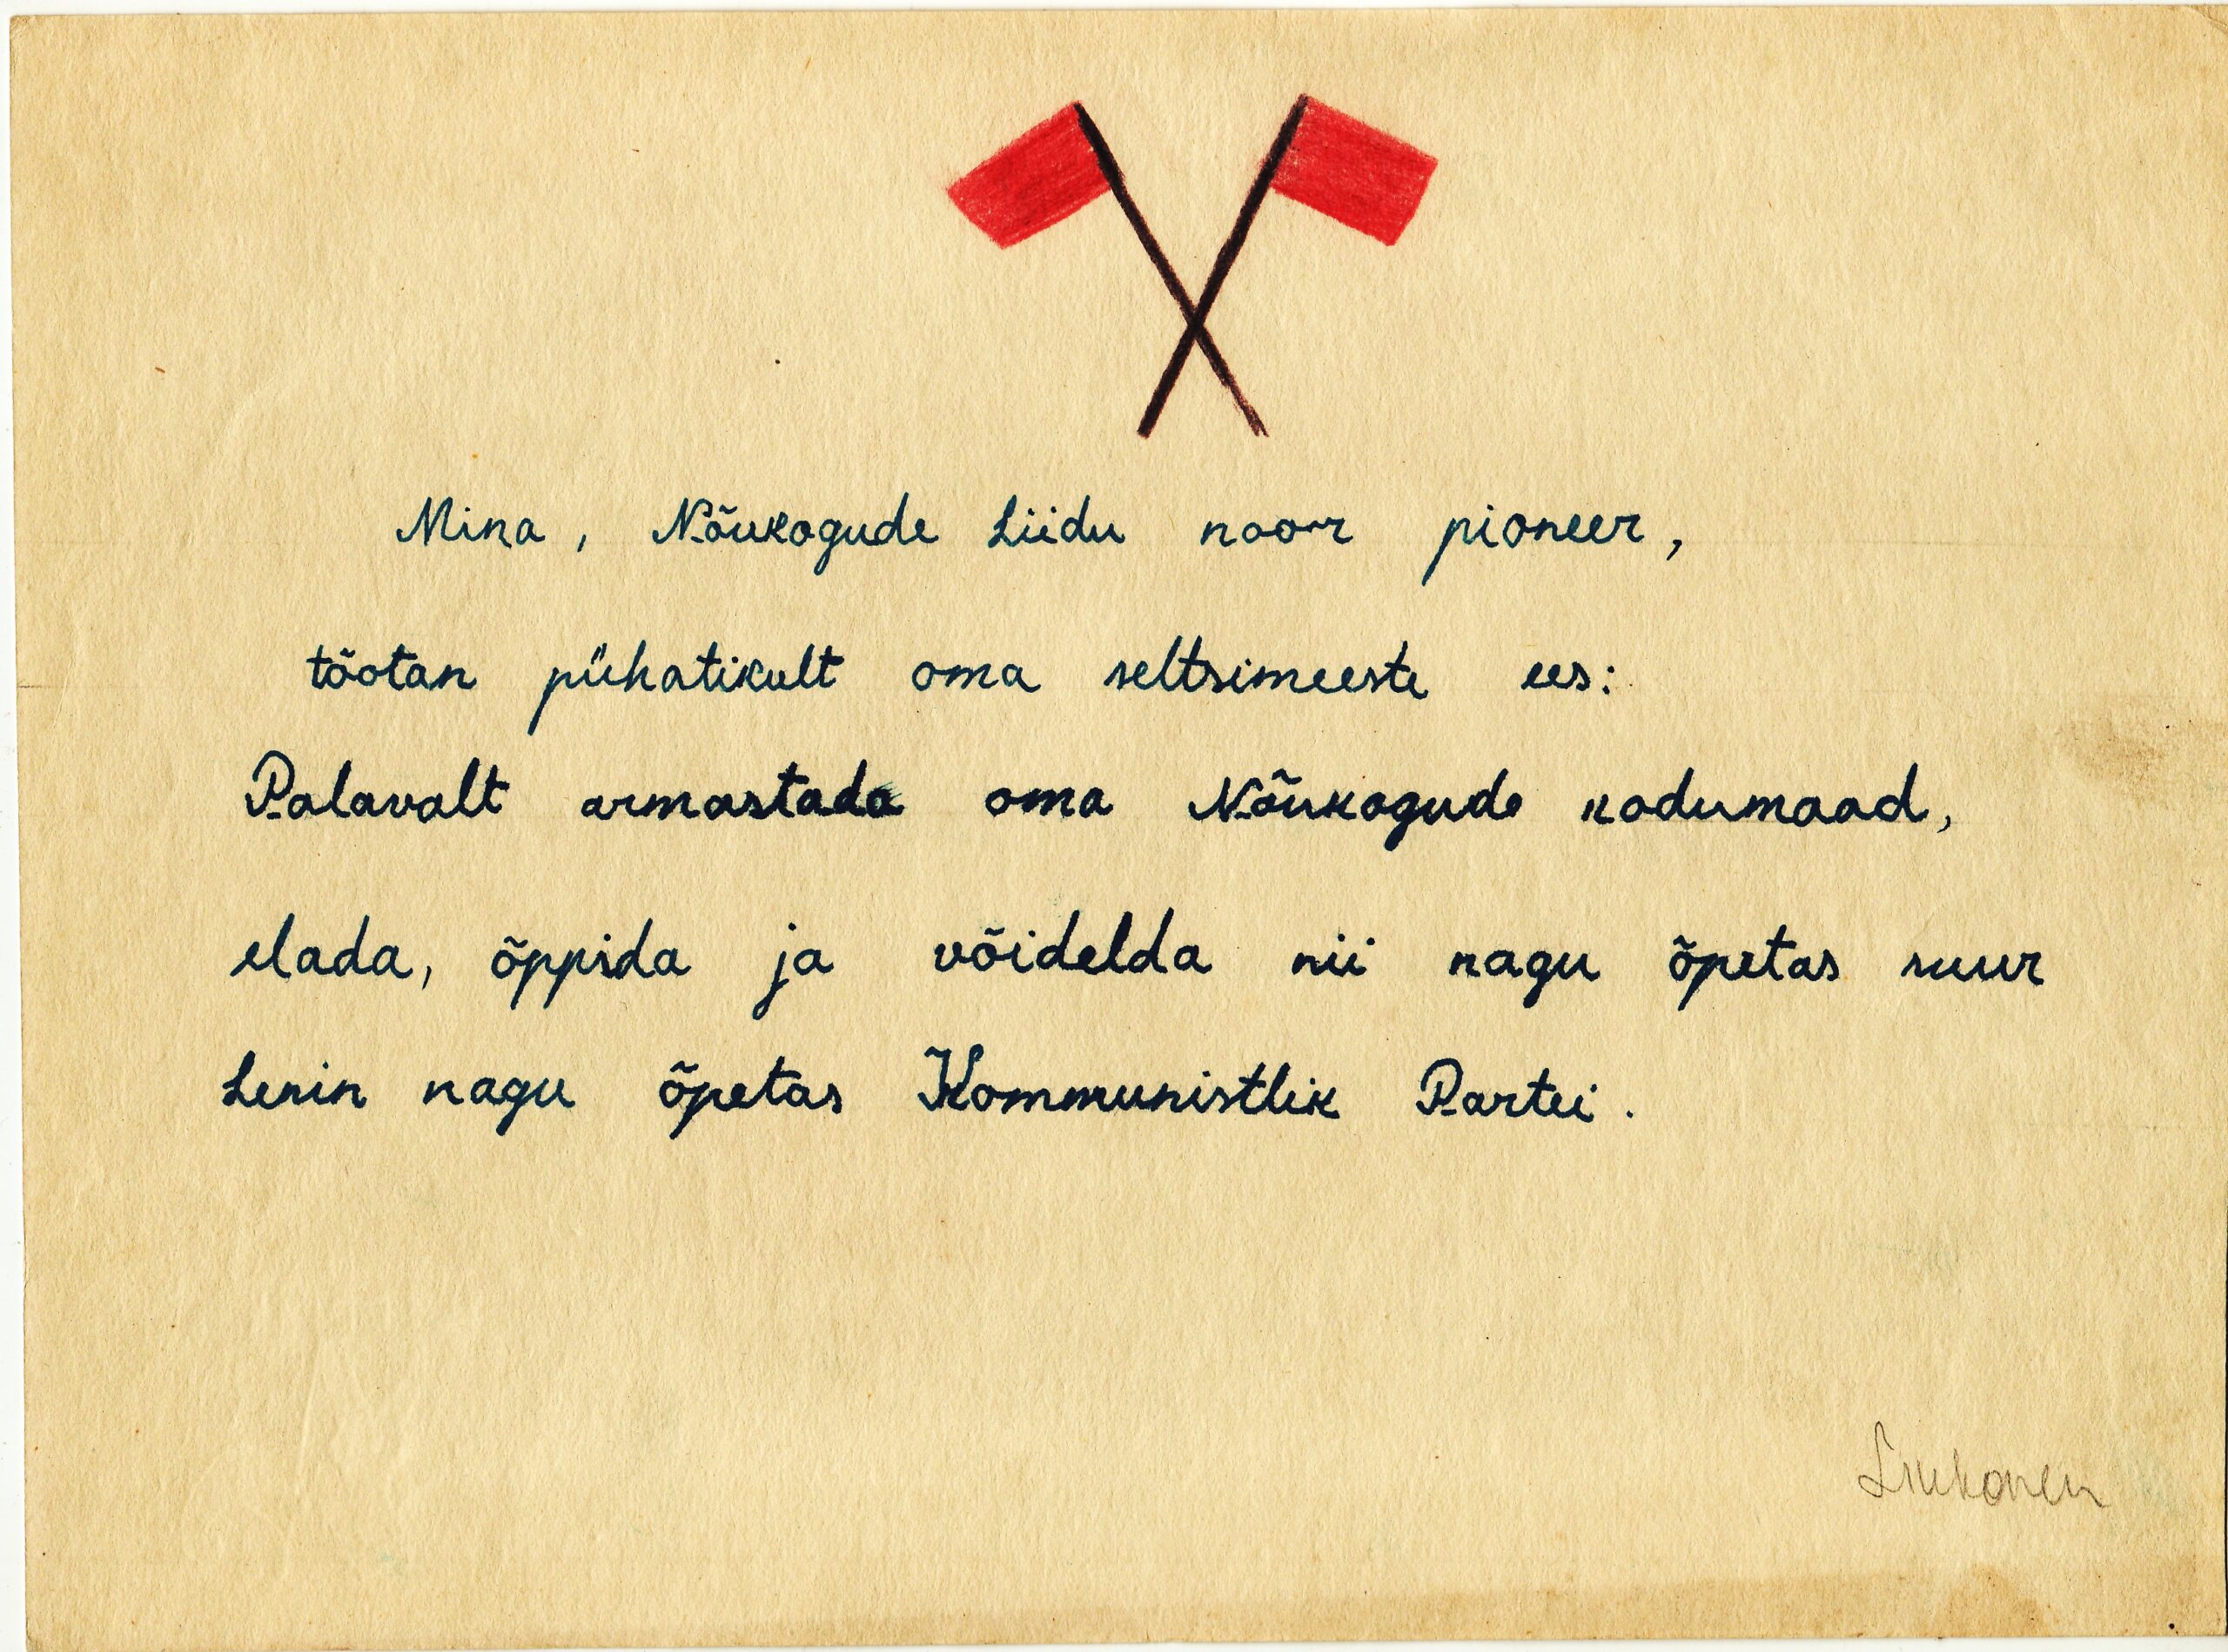 Mina, Nõukogude Liidu noor pioneer,
tõotan pühatikult oma seltsimeeste ees:
Palavalt armastada oma Nõukogude kodumaad,
elada, õppida ja võidelda nii nagu õpetas suur
Lenin nagu õpetas Kommunistlik Partei.